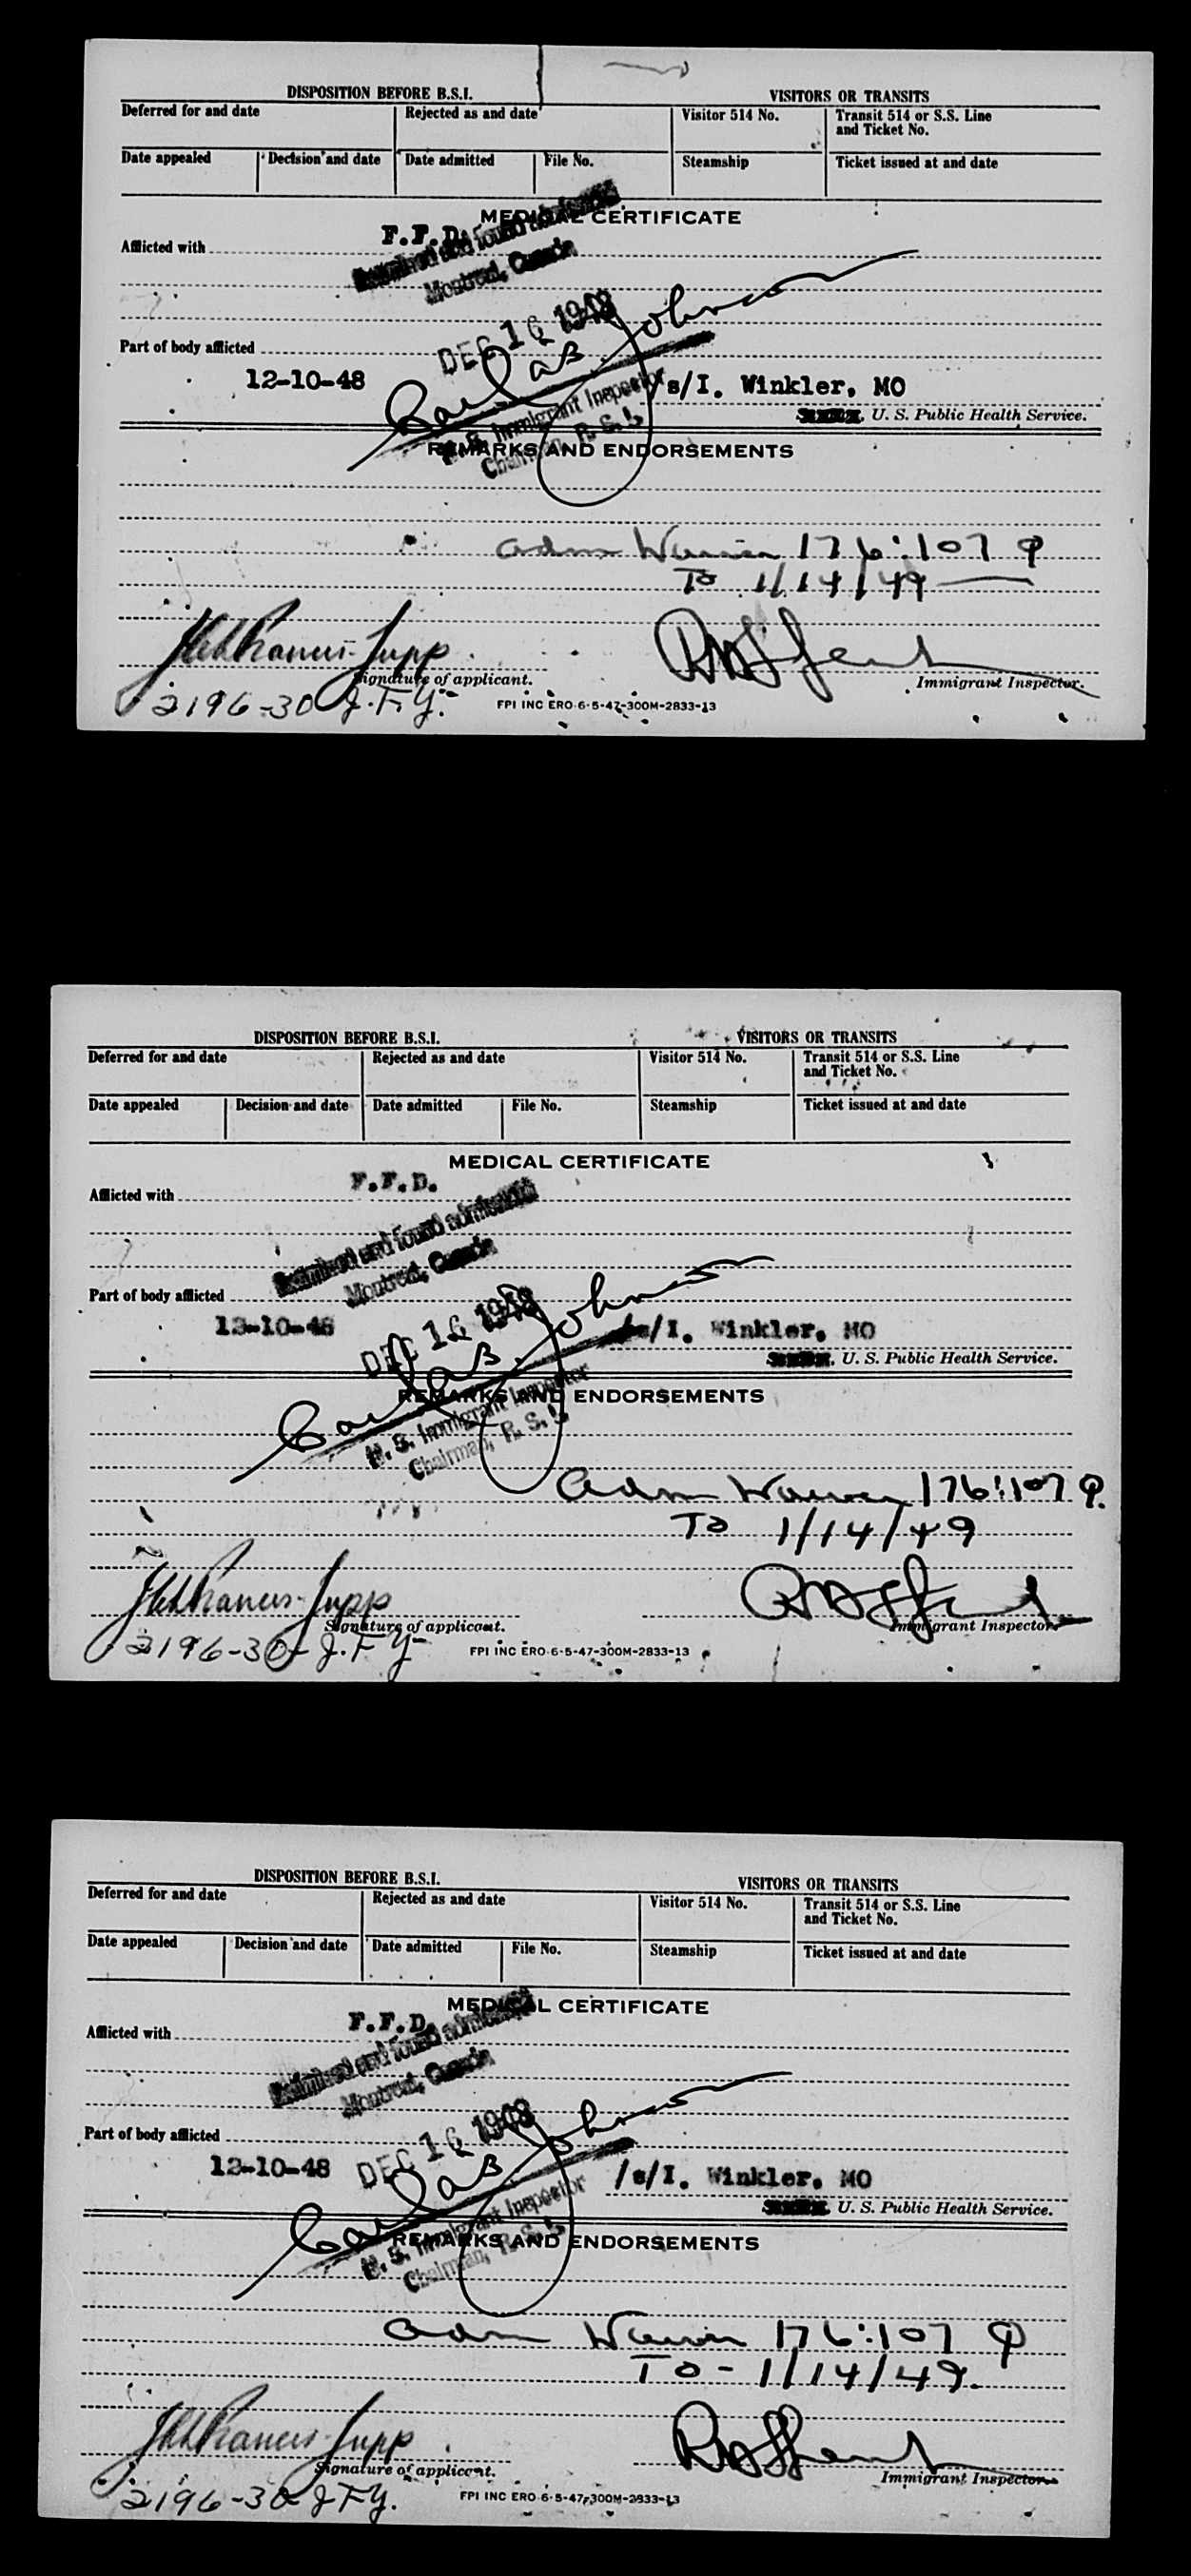 DISPOSITION BEFORE B.S.I. VISITORS OR TRANSITS
Deferred for and date Rejected as and date Visitor 514 No. Transit 514 or S.S. Line and Ticket No.
Date appealed Decision and date Date admitted File No. Steamship Ticket issued at and date
MEDICAL CERTIFICATE
Afflicted with F.F.D.
Examined and found admissible
Montreal, Canada
Part of body afflicted
DEC 16 1948
12-10-48
/s/I. Winkler, MO
U. S. Public Health Service.
U. S. Immigrant Inspector
Chairman, B. S. I.
REMARKS AND ENDORSEMENTS
adm 176:107
To 1/14/49
Signature of applicant. Immigrant Inspector.
2196-30 J.F.Y.
FPI INC ERO-6-5-47-300M-2833-13
DISPOSITION BEFORE B.S.I. VISITORS OR TRANSITS
Deferred for and date Rejected as and date Visitor 514 No. Transit 514 or S.S. Line and Ticket No.
Date appealed Decision and date Date admitted File No. Steamship Ticket issued at and date
MEDICAL CERTIFICATE
Afflicted with F.F.D.
Examined and found admissible
Montreal, Canada
Part of body afflicted
DEC 16 1948
/s/I. Winkler, MO
U. S. Public Health Service.
REMARKS AND ENDORSEMENTS
U. S. Immigrant Inspector
Chairman, B. S. I.
adm 176:107
To 1/14/49
Signature of applicant. Immigrant Inspector.
2196-30 J.F.Y.
FPI INC ERO-6-5-47-300M-2833-13
DISPOSITION BEFORE B.S.I. VISITORS OR TRANSITS
Deferred for and date Rejected as and date Visitor 514 No. Transit 514 or S.S. Line and Ticket No.
Date appealed Decision and date Date admitted File No. Steamship Ticket issued at and date
MEDICAL CERTIFICATE
Afflicted with F.F.D.
Examined and found admissible
Montreal, Canada
Part of body afflicted
DEC 16 1948
12-10-48
/s/I. Winkler, MO
U. S. Public Health Service.
REMARKS AND ENDORSEMENTS
U. S. Immigrant Inspector
Chairman, B. S. I.
adm 176:107
To - 1/14/49.
Signature of applicant. Immigrant Inspector.
2196-30 J.F.Y.
FPI INC ERO-6-5-47-300M-2833-13